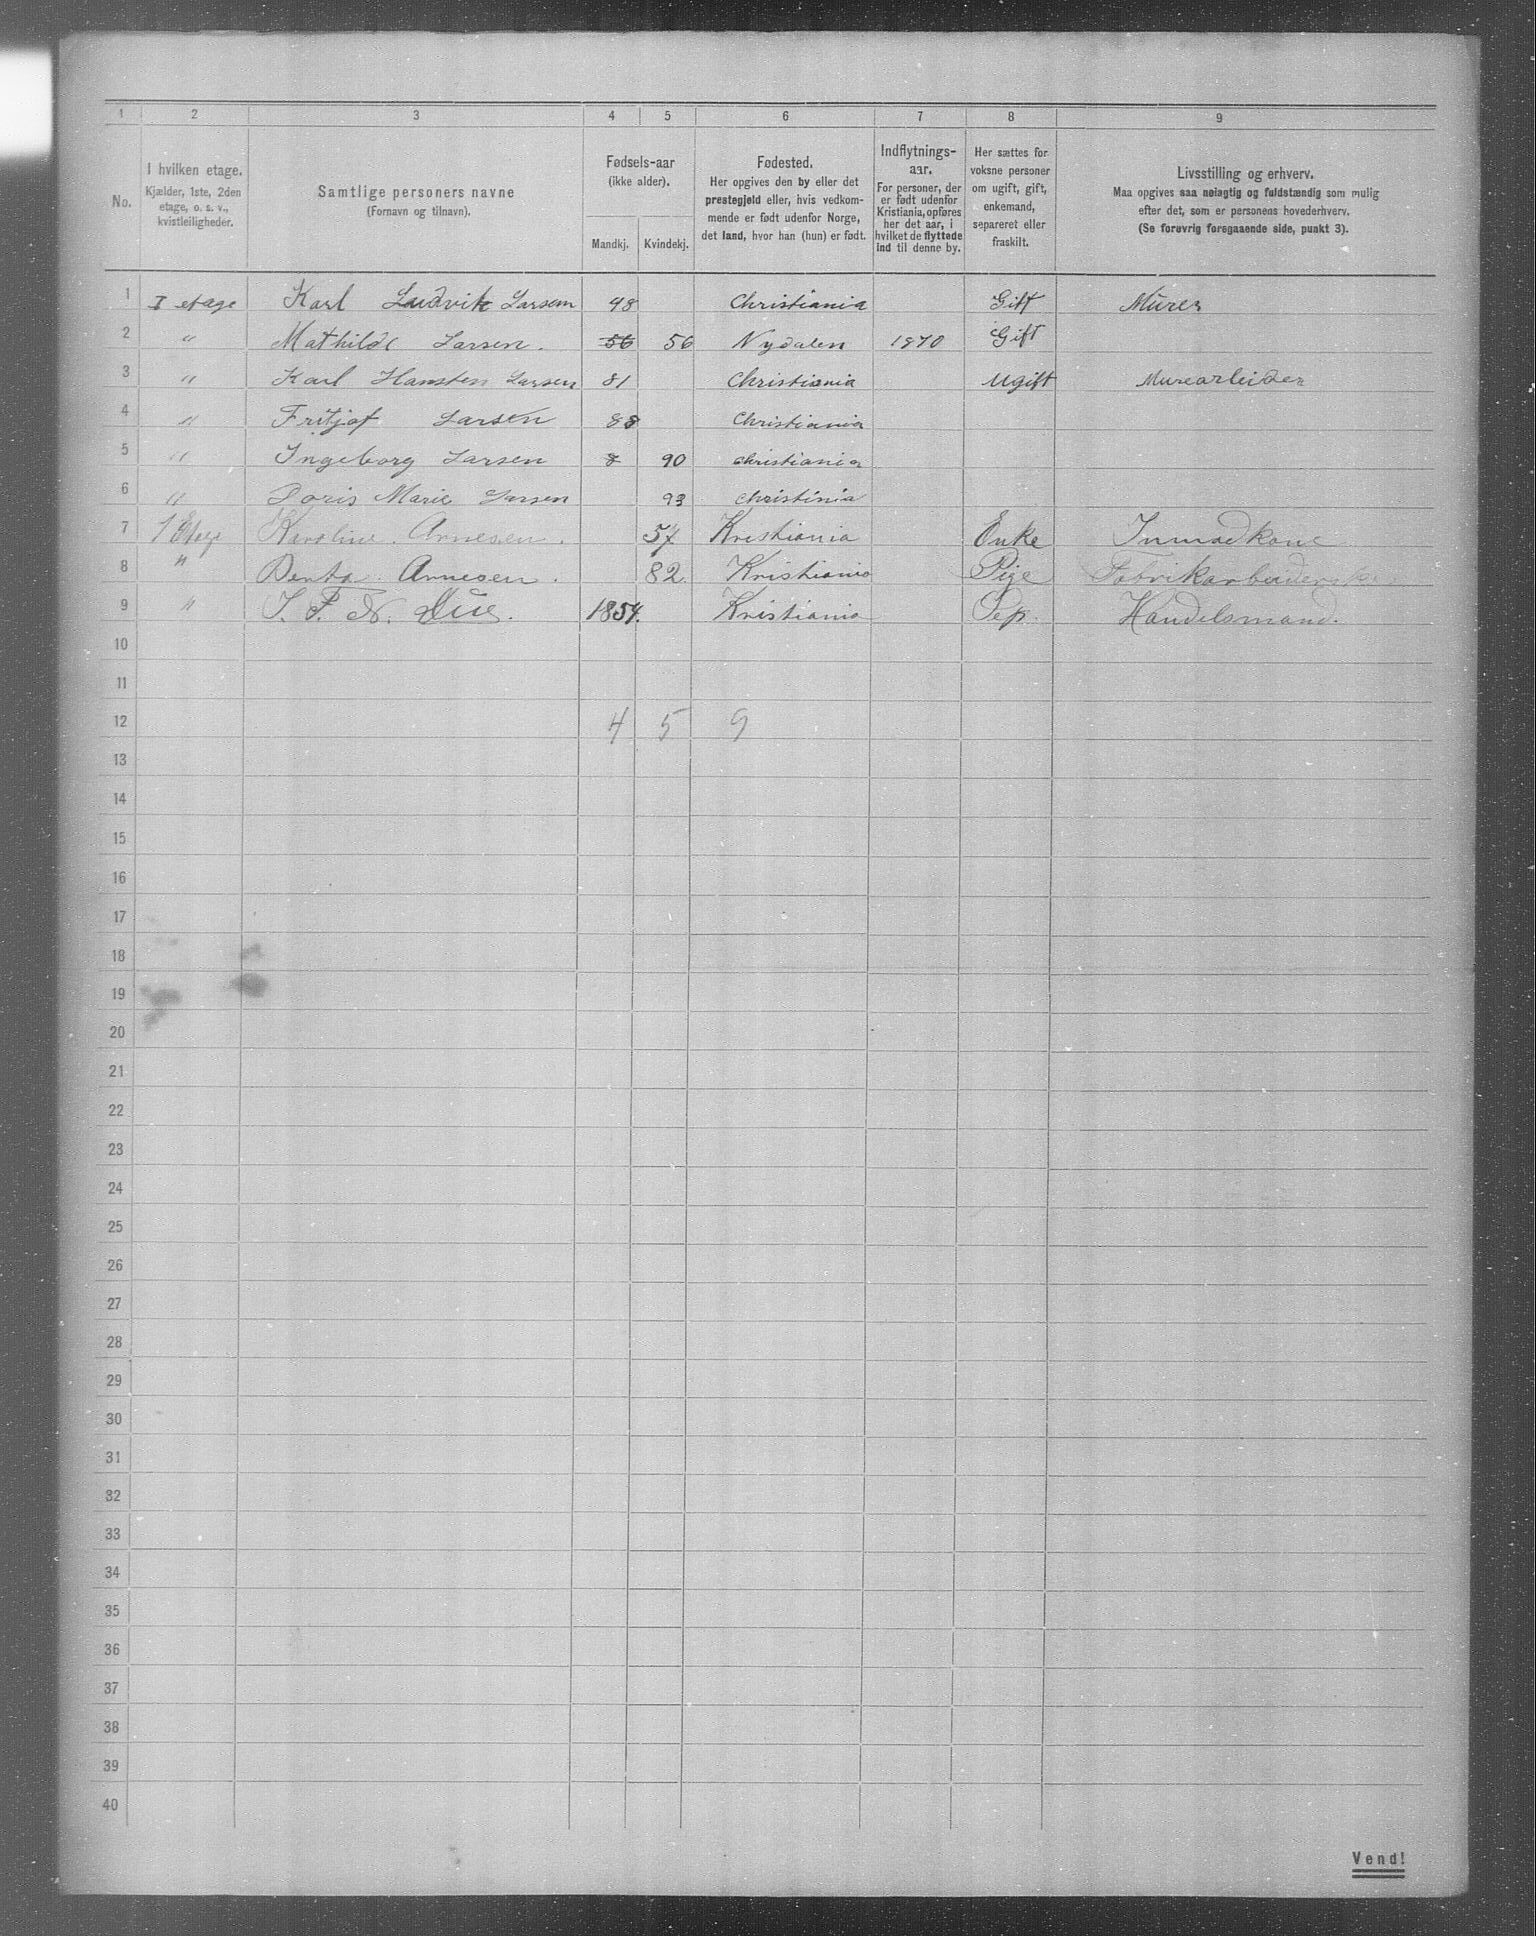 1 2 3 4 5 6 7 8 9
No.
I hvilken etage.
Kjælder, 1ste, 2den
etage, o. s. v.,
kvistleiligheder.
Samtlige personers navne
(Fornavn og tilnavn).
Fødsels-aar
(ikke alder).
Mandkj. Kvindekj.
Fødested.
Her opgives den by eller det
prestegjeld eller, hvis vedkom-
mende er født udenfor Norge,
det land, hvor han (hun) er født.
Indflytnings-
aar.
For personer, der
er født udenfor
Kristiania, opføres
her det aar, i
hvilket de flyttede
ind til denne by.
Her sættes for
voksne personer
om ugift, gift,
enkemand,
separeret eller
fraskilt.
Livsstilling og erhverv.
Maa opgives saa nøiagtig og fuldstændig som mulig
efter det, som er personens hovederhverv.
(Se forøvrig foregaaende side, punkt 3).
1 I etage Karl Ludvik Larsem 48 Christiania Gift Murer
2 " Mathilde Larsen. 56 56 Nydalen 1870 Gift
3 " Karl Hansten Larsen 81 Christiania Ugift Murearleider
4 " Fritjof Larsen 88 Christiania
5 " Ingeborg Larsen 8 90 Christiania
6 " Doris Marie Larsen 93 Christinia
7 1 Etage Karoline. Arnesen. 57 Kristiania Enke
8 " Arnesen. 82. Kristiania Pige Fabrikarbeiderske
9 " J. F. N. Due. 1854. Kristiania Sep. Handelsmand.
10
11
12 4 5 9
13
14
15
16
17
18
19
20
21
22
23
24
25
26
27
28
29
30
31
32
33
34
35
36
37
38
39
40
Vend!